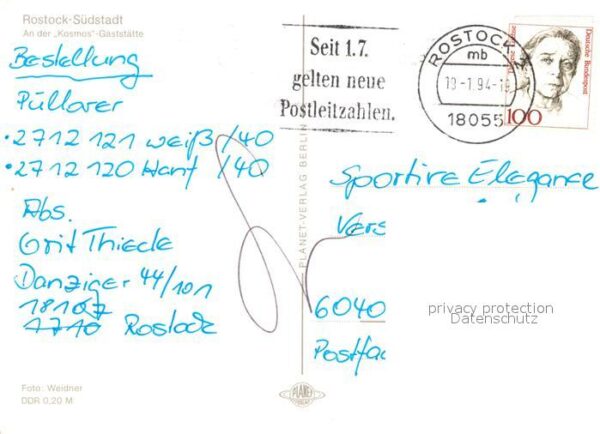 Rostock-Südstadt
An der „Kosmos"-Gaststätte
Bestellung
Pullover
• 2712 121 weiß /40
• 2712 120 Hanf /40
Abs.
Grit Thiede
Danziger 44/101
18107
1710 Rostock
Foto: Weidner
DDR 0,20 M
PLANET-VERLAG BERLIN
PLANET
Seit 1.7.
gelten neue
Postleitzahlen.
ROSTOCK
mb
18055
Deutsche Bundespost
100
Sportive Elegance
Vers
6040
Postfac
privacy protection
Datenschutz